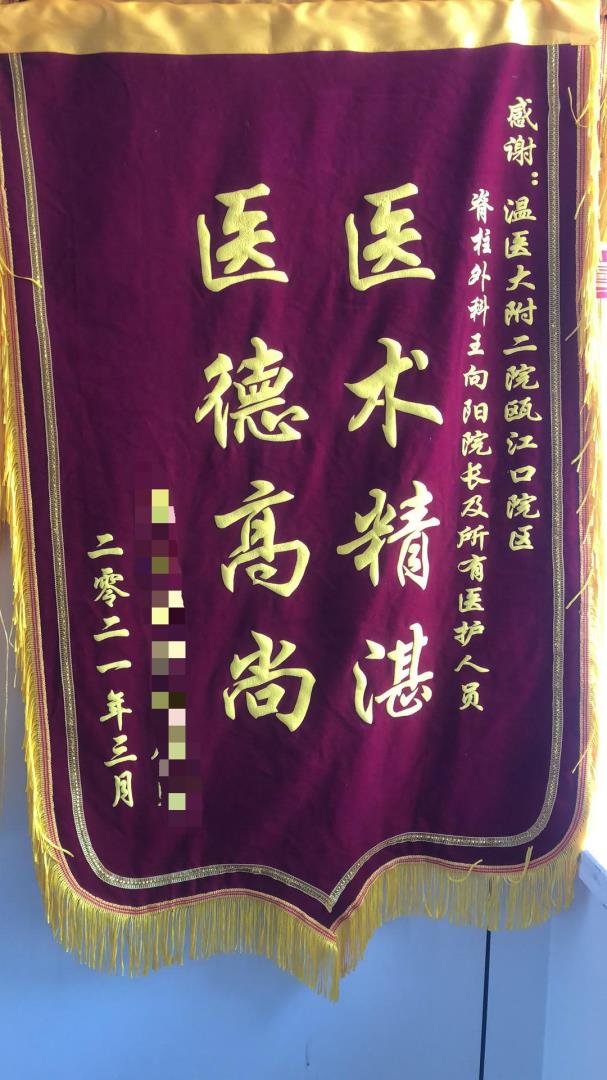 感谢：温医大附二院瓯江口院区
脊柱外科王向阳院长及所有医护人员
医术精湛
医德高尚
二零二一年三月